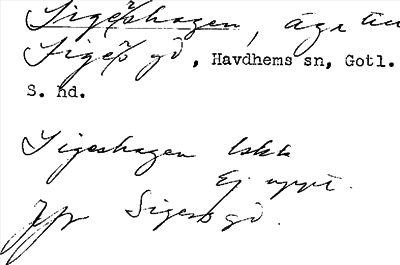 Sigeshagen, äga till
Sige's gd, Havdhems sn, Gotl.
S. hd.
Sigeshagen
Ej uppt.
Jfr Siges gd.